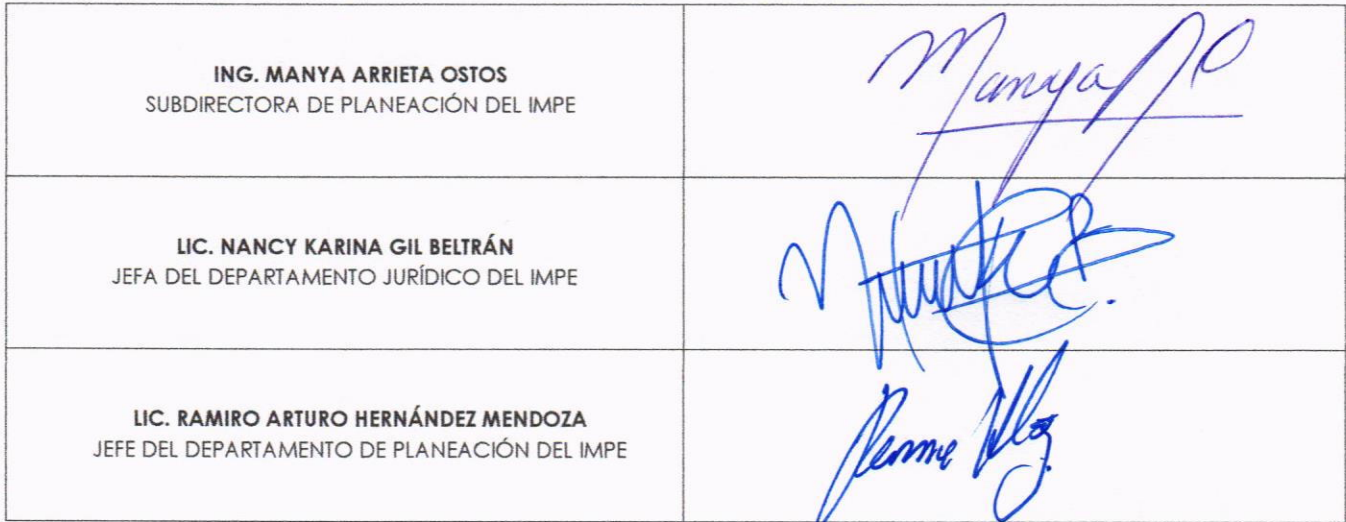 ING. MANYA ARRIETA OSTOS
SUBDIRECTORA DE PLANEACIÓN DEL IMPE
Manya
LIC. NANCY KARINA GIL BELTRÁN
JEFA DEL DEPARTAMENTO JURÍDICO DEL IMPE
LIC. RAMIRO ARTURO HERNÁNDEZ MENDOZA
JEFE DEL DEPARTAMENTO DE PLANEACIÓN DEL IMPE